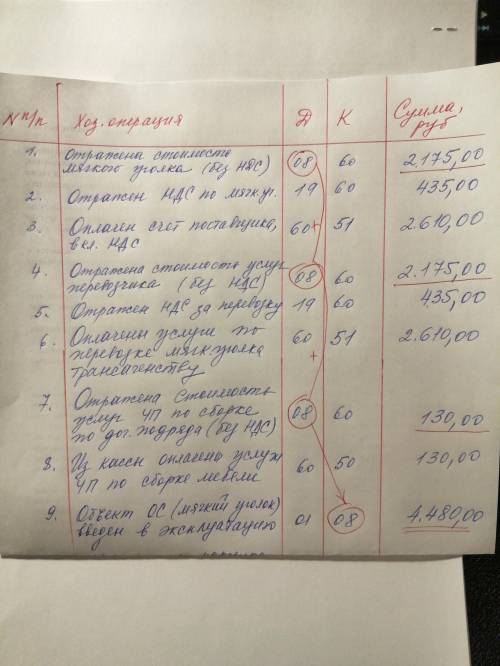 N п/п Хоз. операция Д К Сумма, руб
1. Отражена стоимость 08 60 2.175,00
мягкого уголка (без НДС)
2. Отражен НДС по мягк. уг. 19 60 435,00
3. Оплачен счет поставщика, 60 51 2.610,00
вкл. НДС
4. Отражена стоимость услуг 08 60 2.175,00
перевозчика (без НДС)
5. Отражен НДС за перевозку 19 60 435,00
6. Оплачены услуги по 60 51 2.610,00
перевозке мягк. уголка
трансагенству
7. Отражена стоимость
услуг ЧП по сборке 08 60 130,00
по дог. подряда (без НДС)
8. Из кассы оплачены услуги 60 50 130,00
ЧП по сборке мебели
9. Объект ОС (мягкий уголок) 01 08 4.480,00
введен в эксплуатацию